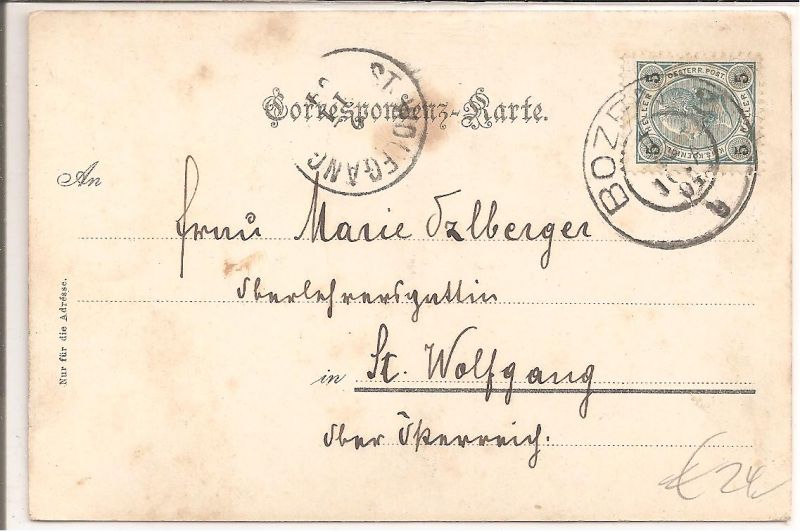 Correspondenz-Karte.
ST. WOLFGANG
5 OESTERR. POST. 5
HELLER
5 5
BOZEN
An
Frau Marie Ozlberger
Oberlehrersgattin
in St. Wolfgang
Ober Österreich.
Nur für die Adresse.
€ 24